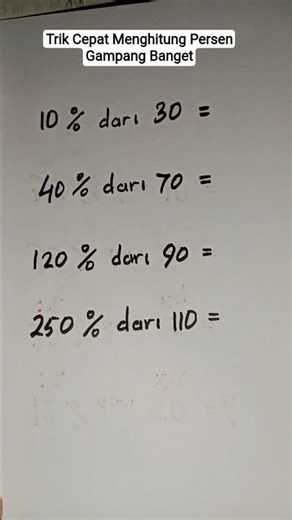 Trik Cepat Menghitung Persen
Gampang Banget
10 % dari 30 =
40 % dari 70 =
120 % dari 90 =
250 % dari 110 =